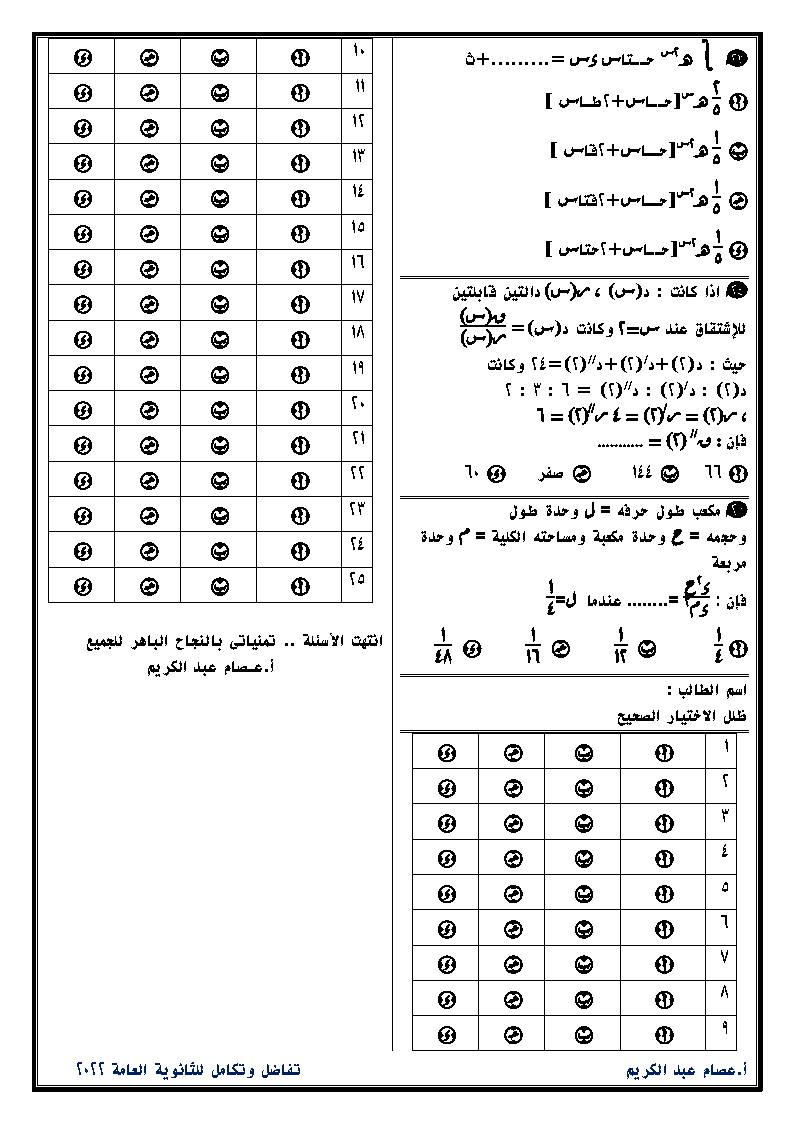 ∫ هـ^٢س حــتاس ءس = .........+ث
أ ٢/٥ هـ^س[حــاس+٢طــاس ]
ب ١/٥ هـ^٢س[حــاس+٢قاس ]
جـ ١/٥ هـ^٢س[حــاس+٢قتاس ]
ء ١/٥ هـ^٢س[حــاس+٢حتاس ]
اذا كانت : د(س) ، ر(س) دالتين قابلتين
للإشتقاق عند س=٢ وكانت د(س) = ق(س)/ر(س)
حيث : د(٢)+د/(٢)+د//(٢)=٢٤ وكانت
د(٢) : د/(٢) : د//(٢) = ٦ : ٣ : ٢
، ر(٢) = ر/(٢) = ٤ ر//(٢) = ٦
فإن : ق//(٢) = ...........
أ ٦٦ ب ١٤٤ جـ صفر ء ٦٠
مكعب طول حرفه = ل وحدة طول
وحجمه = ح وحدة مكعبة ومساحته الكلية = م وحدة
مربعة
فإن : ء^٢ح/ءم^٢ =........ عندما ل=١/٤
أ ١/٤ ب ١/١٢ جـ ١/١٦ ء ١/٤٨
اسم الطالب :
ظلل الاختيار الصحيح
١ أ ب جـ ء
٢ أ ب جـ ء
٣ أ ب جـ ء
٤ أ ب جـ ء
٥ أ ب جـ ء
٦ أ ب جـ ء
٧ أ ب جـ ء
٨ أ ب جـ ء
٩ أ ب جـ ء
١٠ أ ب جـ ء
١١ أ ب جـ ء
١٢ أ ب جـ ء
١٣ أ ب جـ ء
١٤ أ ب جـ ء
١٥ أ ب جـ ء
١٦ أ ب جـ ء
١٧ أ ب جـ ء
١٨ أ ب جـ ء
١٩ أ ب جـ ء
٢٠ أ ب جـ ء
٢١ أ ب جـ ء
٢٢ أ ب جـ ء
٢٣ أ ب جـ ء
٢٤ أ ب جـ ء
٢٥ أ ب جـ ء
انتهت الأسئلة .. تمنياتى بالنجاح الباهر للجميع
أ.عــصام عبد الكريم
أ.عصام عبد الكريم تفاضل وتكامل للثانوية العامة ٢٠٢٢